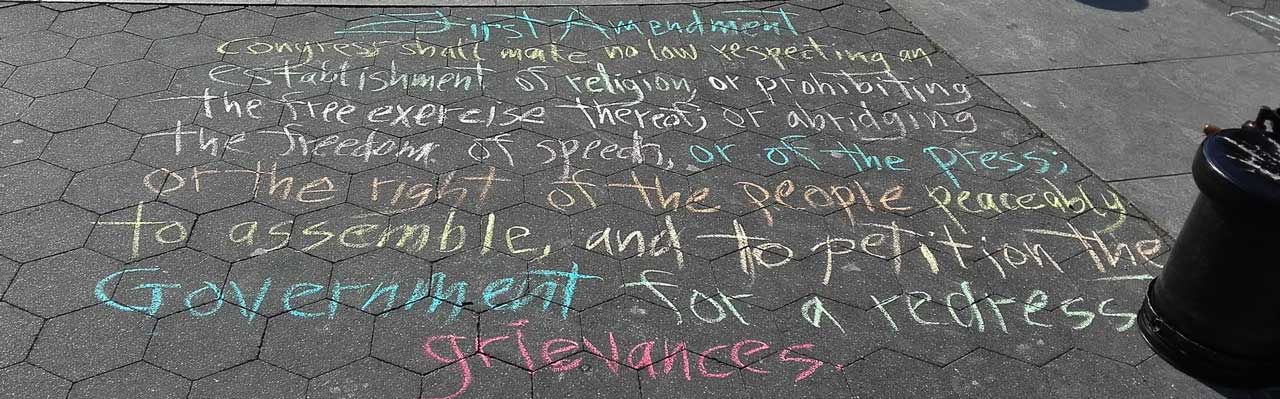 First Amendment
Congress shall make no law respecting an
establishment of religion, or prohibiting
the free exercise thereof; or abridging
the freedom of speech, or of the press;
or the right of the people peaceably
to assemble, and to petition the
Government for a redress
grievances.